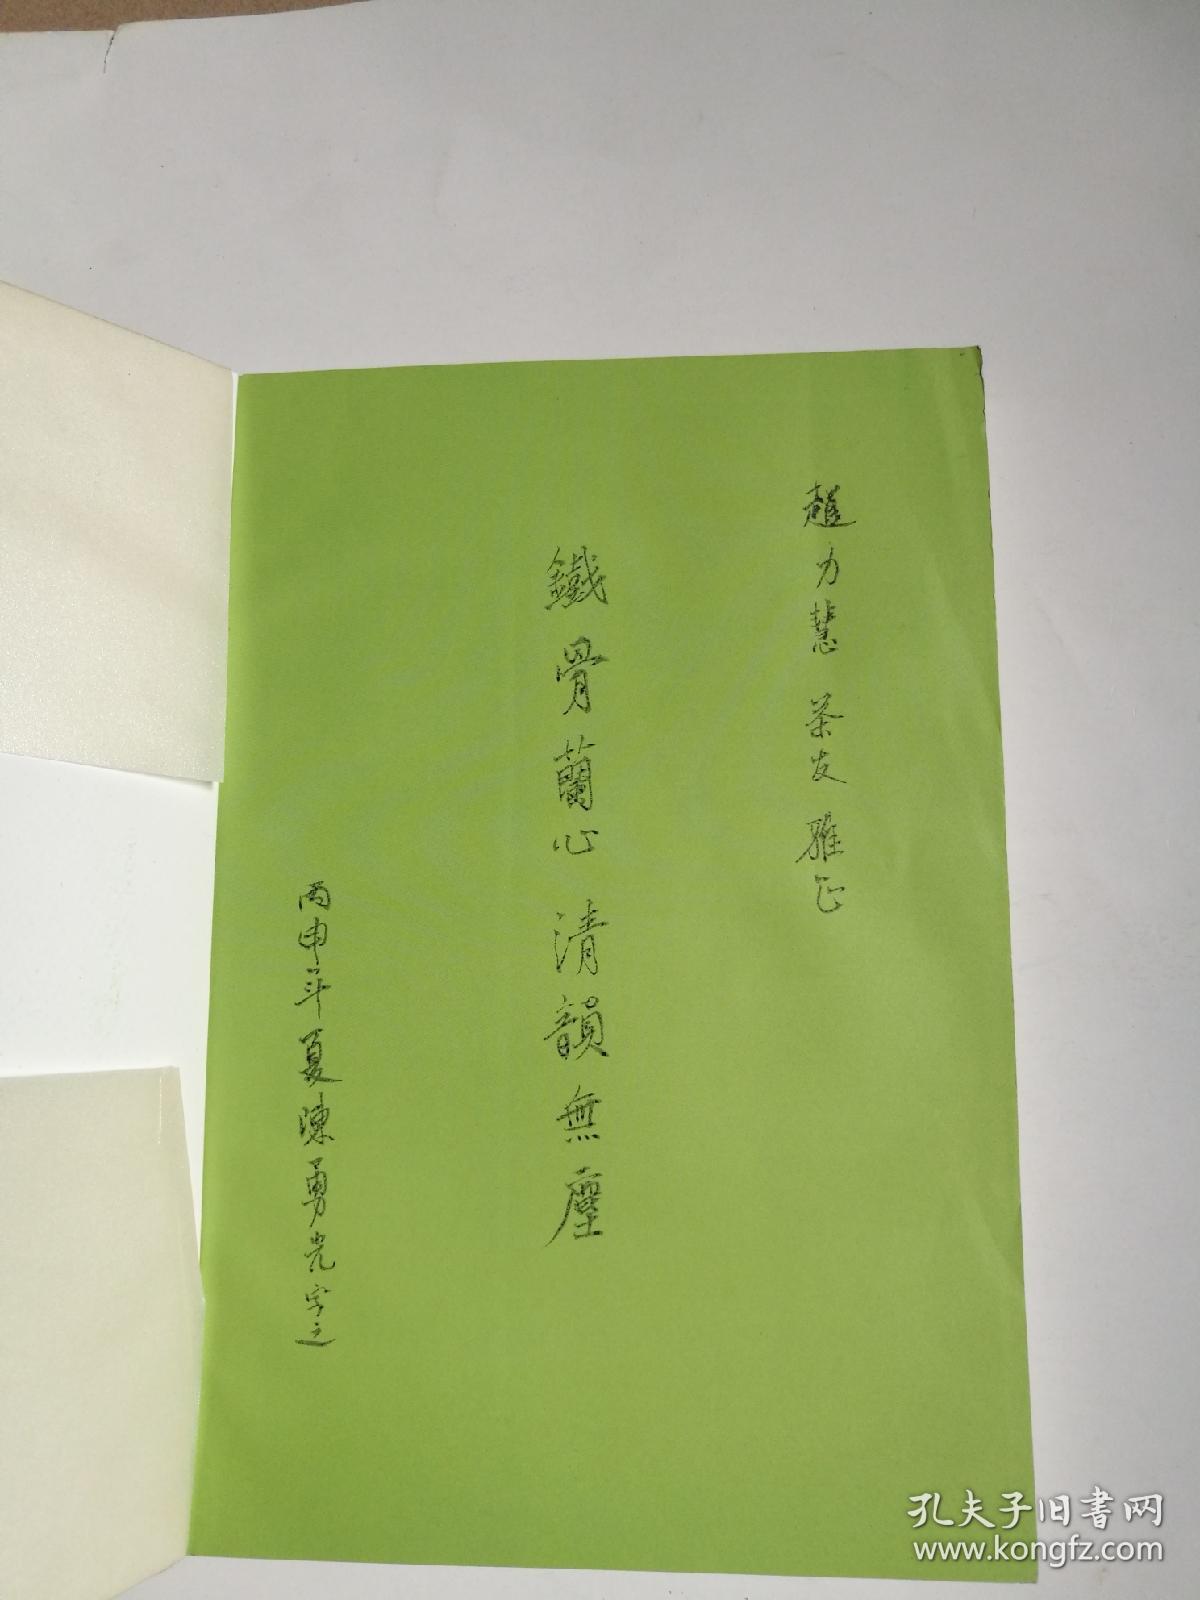 趙力慧 茶友 雅正
鐵骨蘭心 清韻無塵
丙申年夏陳勇光字之
孔夫子旧书网
www.kongfz.com